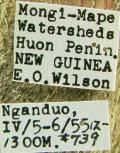 Mongi-Mape
Watersheds
Huon Penin.
NEW GUINEA
E.O.Wilson
Nganduo,
IV/5-6/55 ix-
1300M. #739